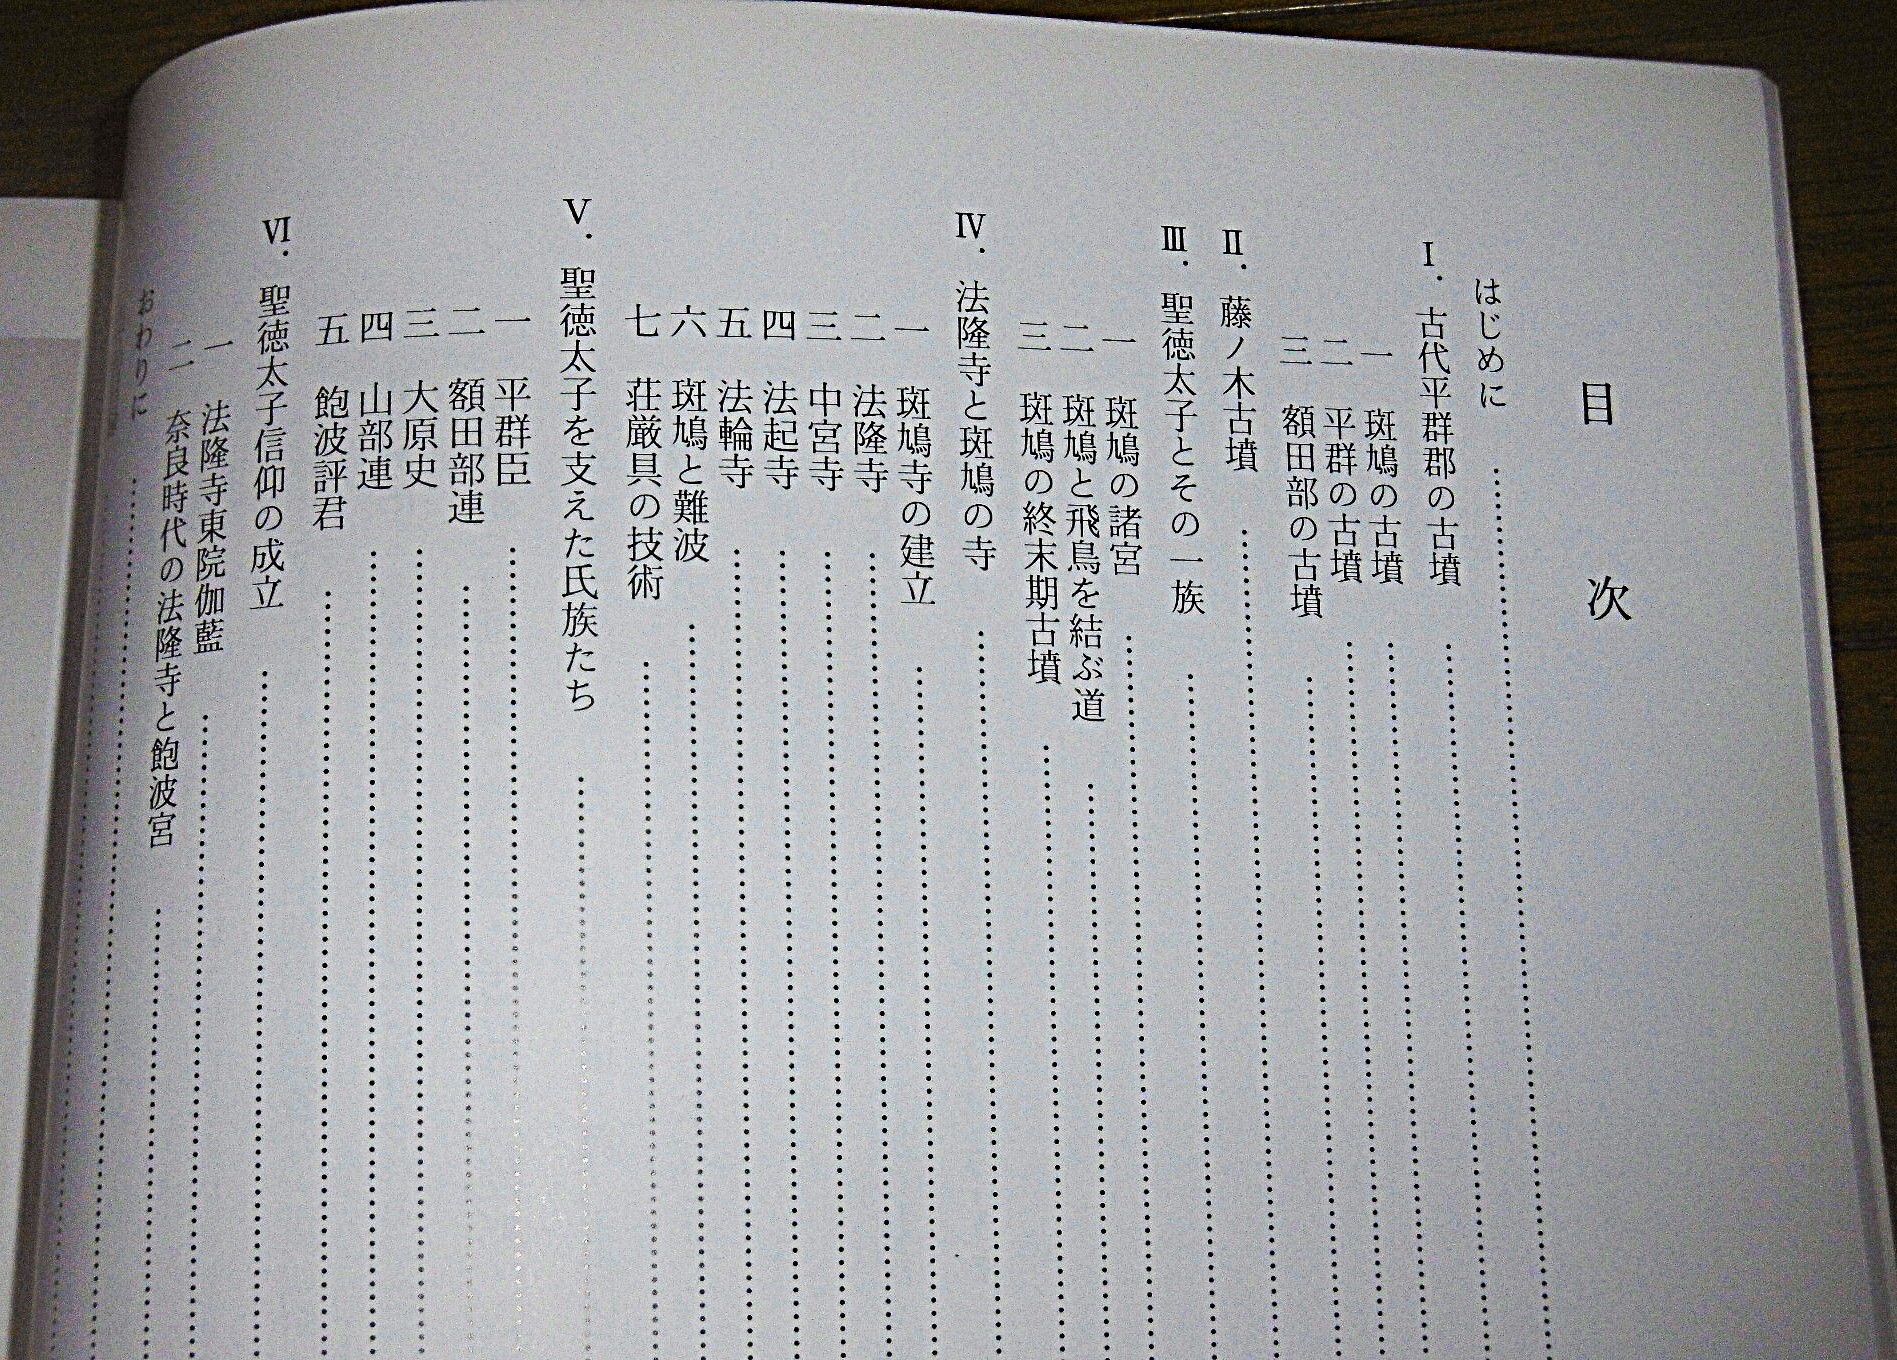 目次
はじめに
Ⅰ．古代平群郡の古墳
一 斑鳩の古墳
二 平群の古墳
三 額田部の古墳
Ⅱ．藤ノ木古墳
Ⅲ．聖徳太子とその一族
一 斑鳩の諸宮
二 斑鳩と飛鳥を結ぶ道
三 斑鳩の終末期古墳
Ⅳ．法隆寺と斑鳩の寺
一 斑鳩寺の建立
二 法隆寺
三 中宮寺
四 法起寺
五 法輪寺
六 斑鳩と難波
七 荘厳具の技術
Ⅴ．聖徳太子を支えた氏族たち
一 平群臣
二 額田部連
三 大原史
四 山部連
五 飽波評君
Ⅵ．聖徳太子信仰の成立
一 法隆寺東院伽藍
二 奈良時代の法隆寺と飽波宮
おわりに